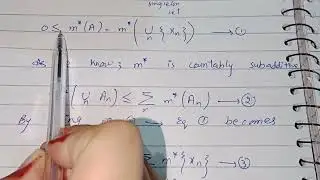 singleton
set
0 ≤ m*(A) = m*( ∪ₙ {xₙ} ) → ①
As know; m* is countably subadditive
( ∪ₙ Aₙ ) ≤ Σₙ m*(Aₙ) → ②
By Eq ① becomes
m*{xₙ} → ③